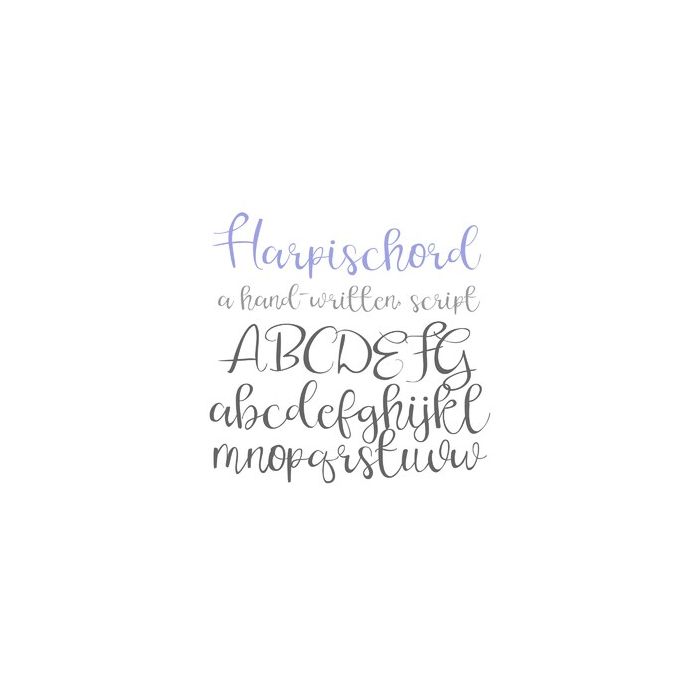 Harpischord
a hand-written script
ABCDEFG
abcdefghijkl
mnopqrstuvw